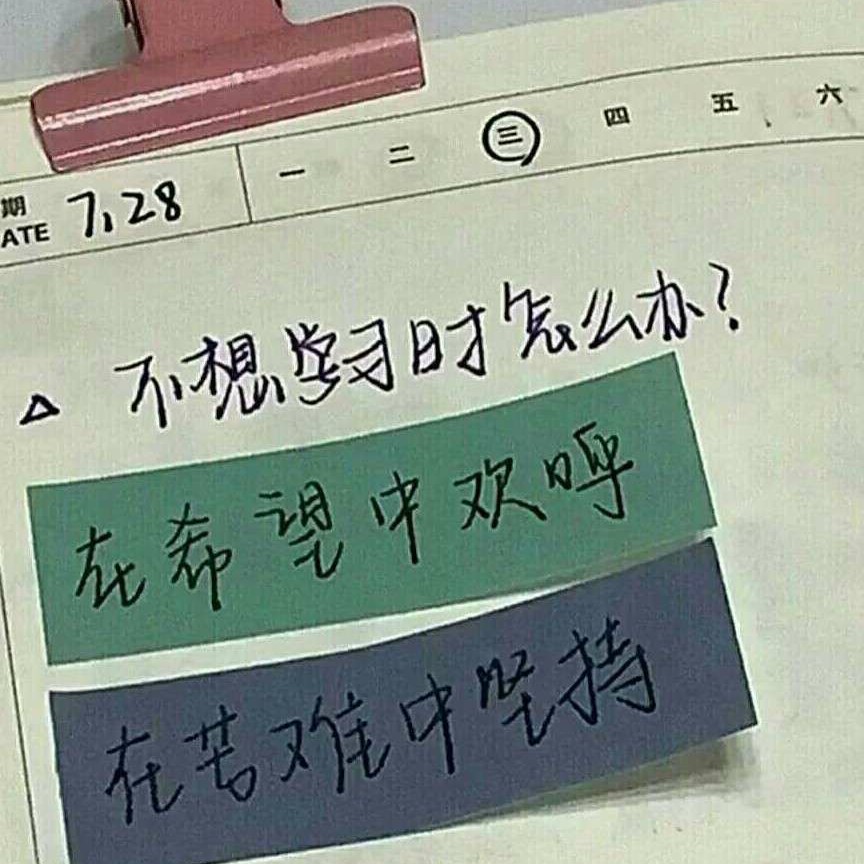 一 二 三 四 五 六
期 7.28
ATE
△ 不想学习时怎么办?
在希望中欢呼
在苦难中坚持